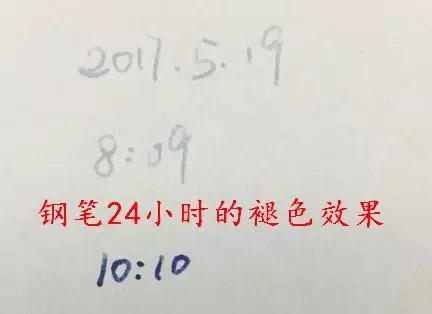 2017.5.19
8:09
钢笔24小时的褪色效果
10:10